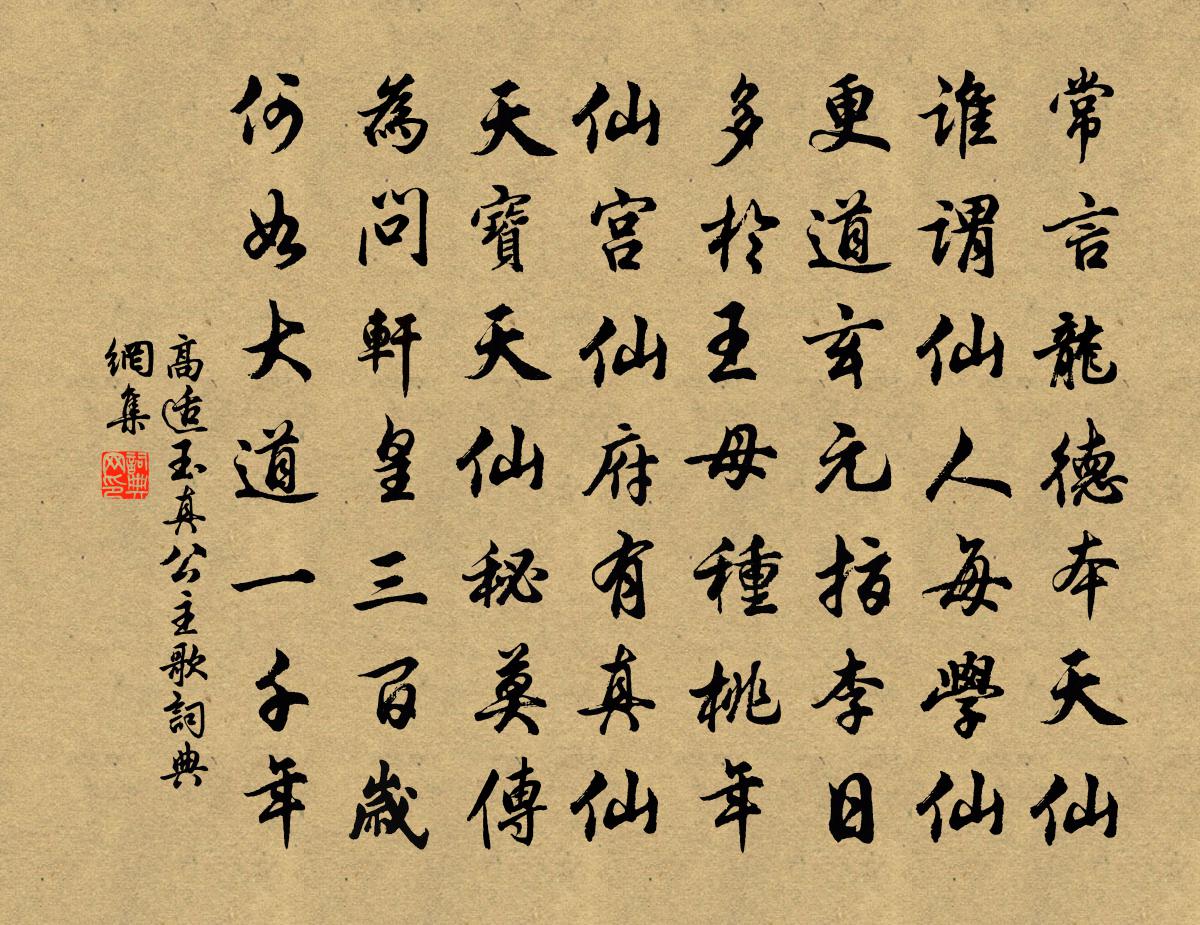 常言龍德本天仙
誰謂仙人每學仙
更道玄元指李日
多於王母種桃年
仙宮仙府有真仙
天寶天仙秘莫傳
為問軒皇三百歲
何如大道一千年
高适玉真公主歌詞典
網集
詞典
网印